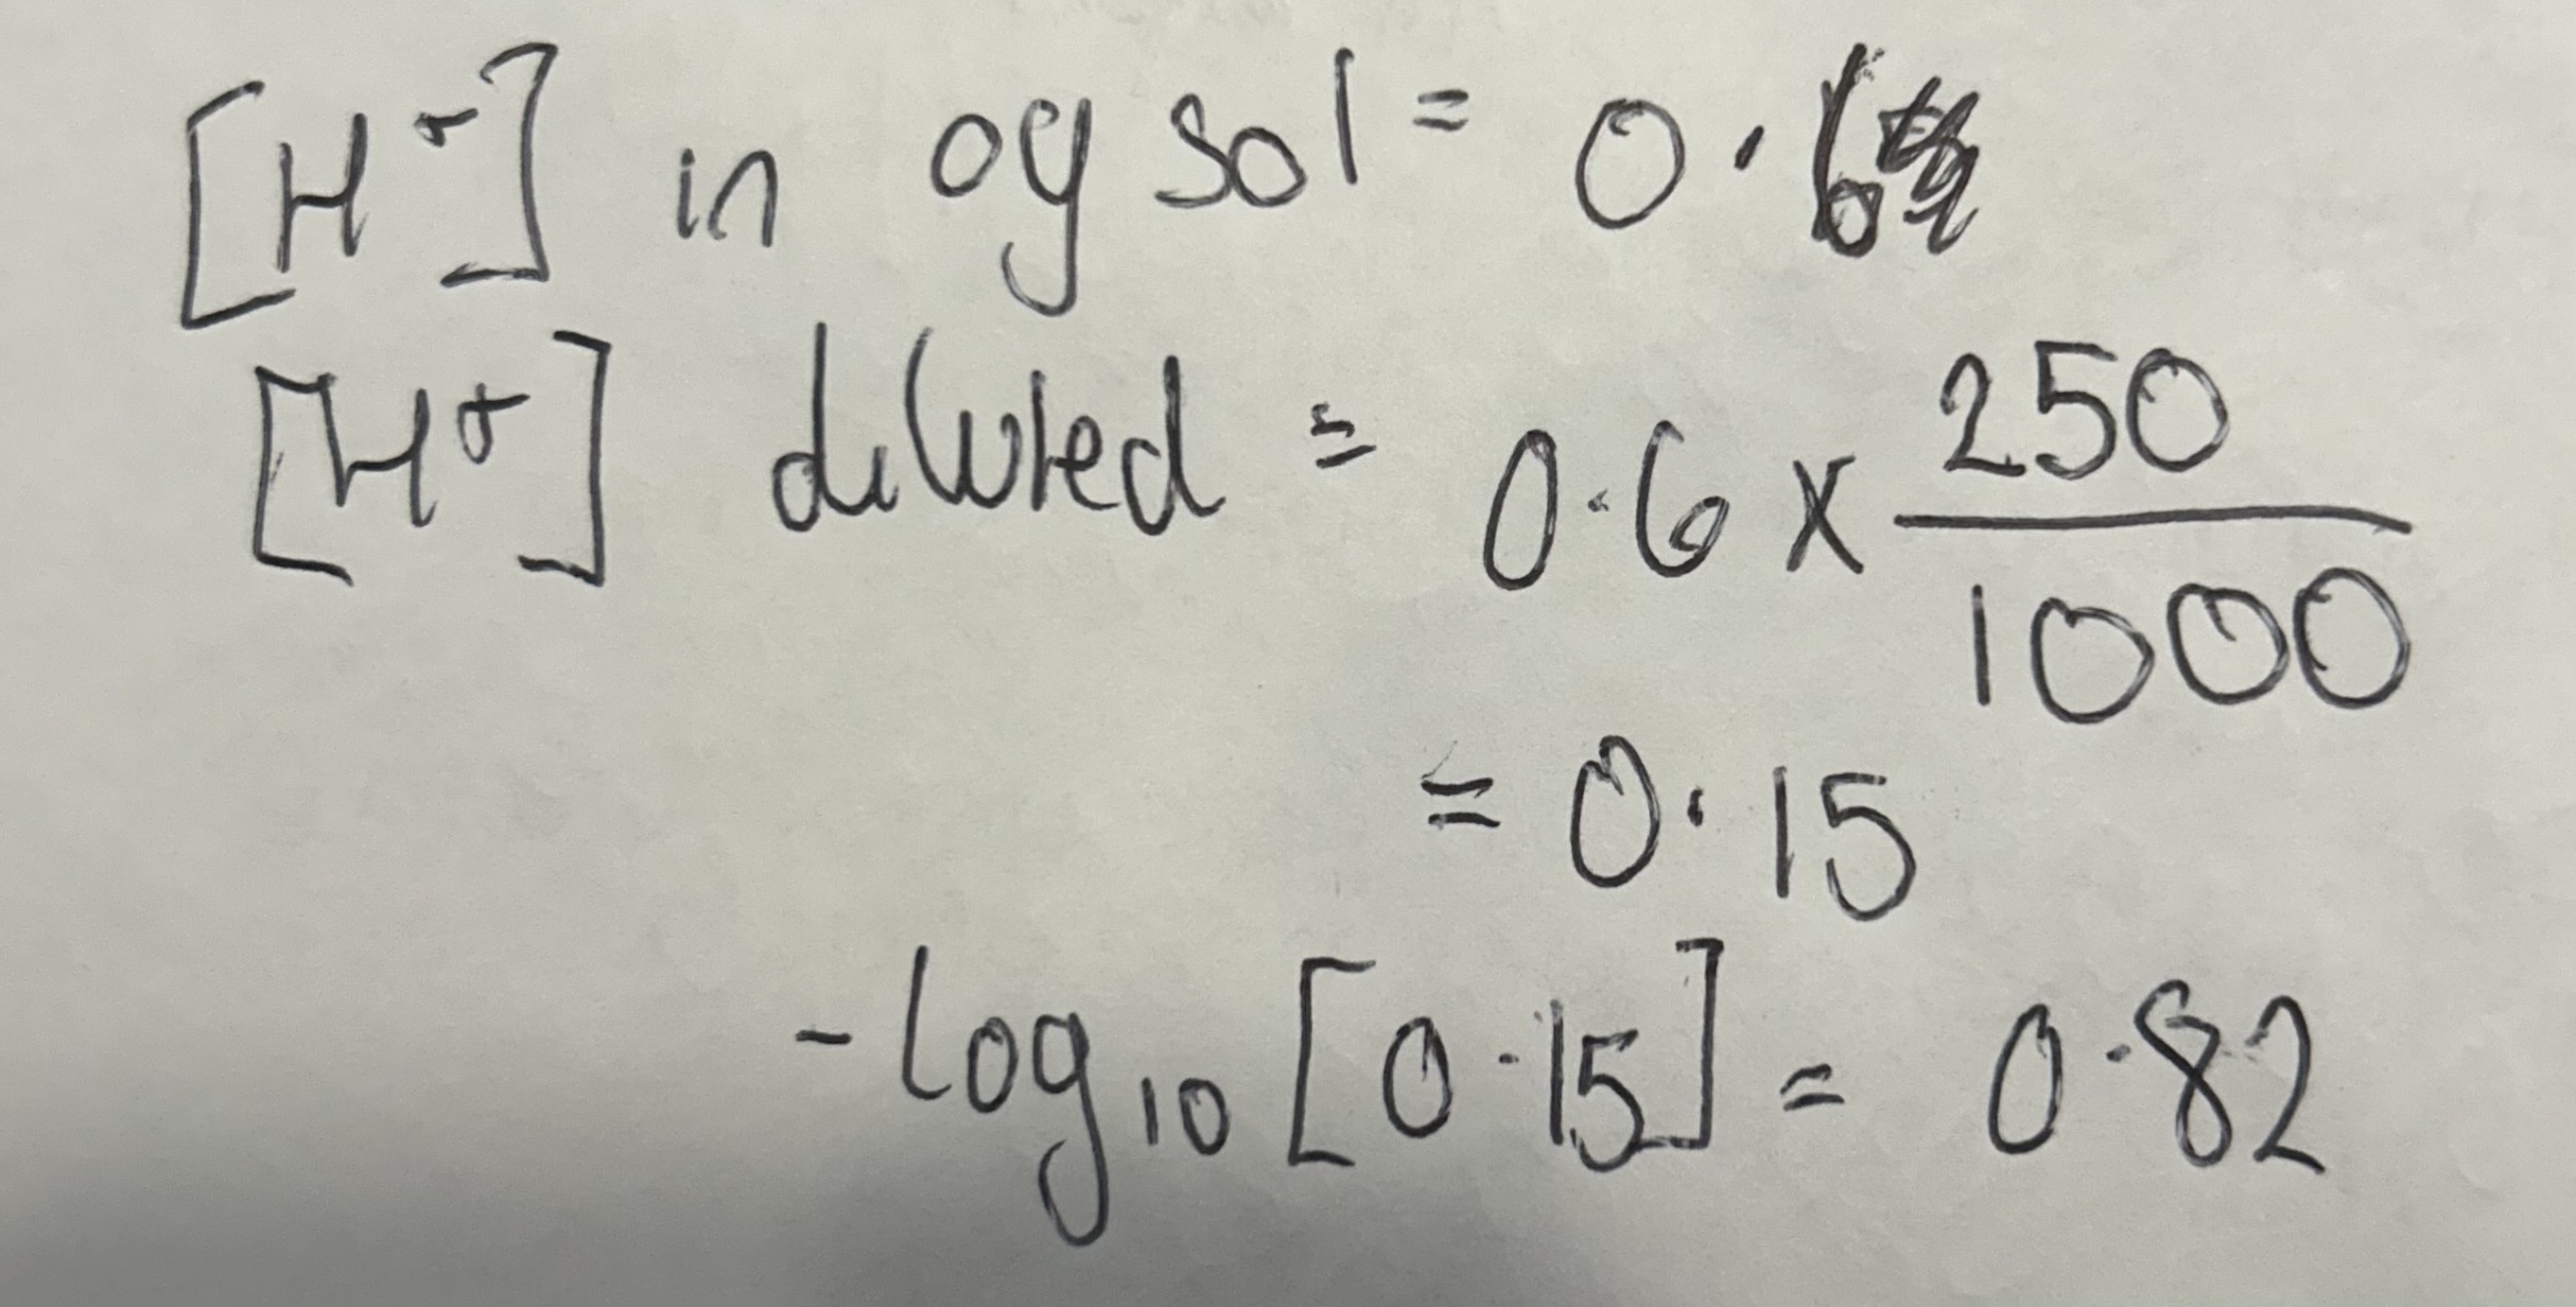 [H+] in og sol = 0.6
[H+] diluted = 0.6 x 250/1000
= 0.15
-log10 [0.15] = 0.82